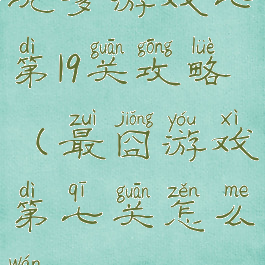 dì guān gōng lüè
第19关攻略
zuì jiǒng yóu xì
(最囧游戏
dì qī guān zěn me
第七关怎么
wán